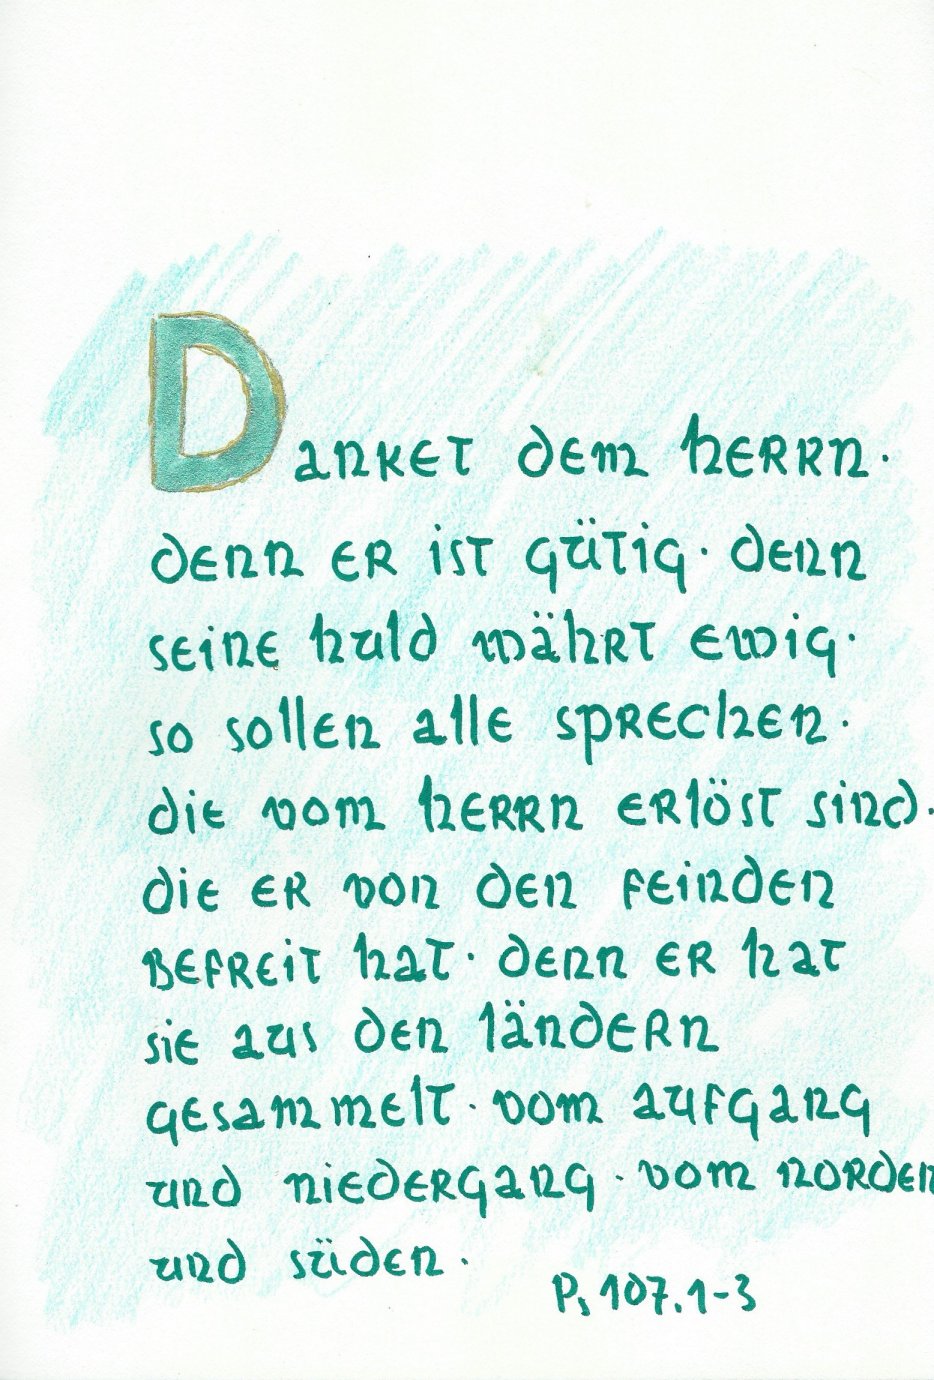 Danket dem herrn·
denn er ist gütig· denn
seine huld währt ewig·
so sollen alle sprechen·
die vom herrn erlöst sind·
die er von den feinden
befreit hat· denn er hat
sie aus den ländern
gesammelt· vom aufgang
und niedergang· vom norden
und süden·
Ps 107.1-3